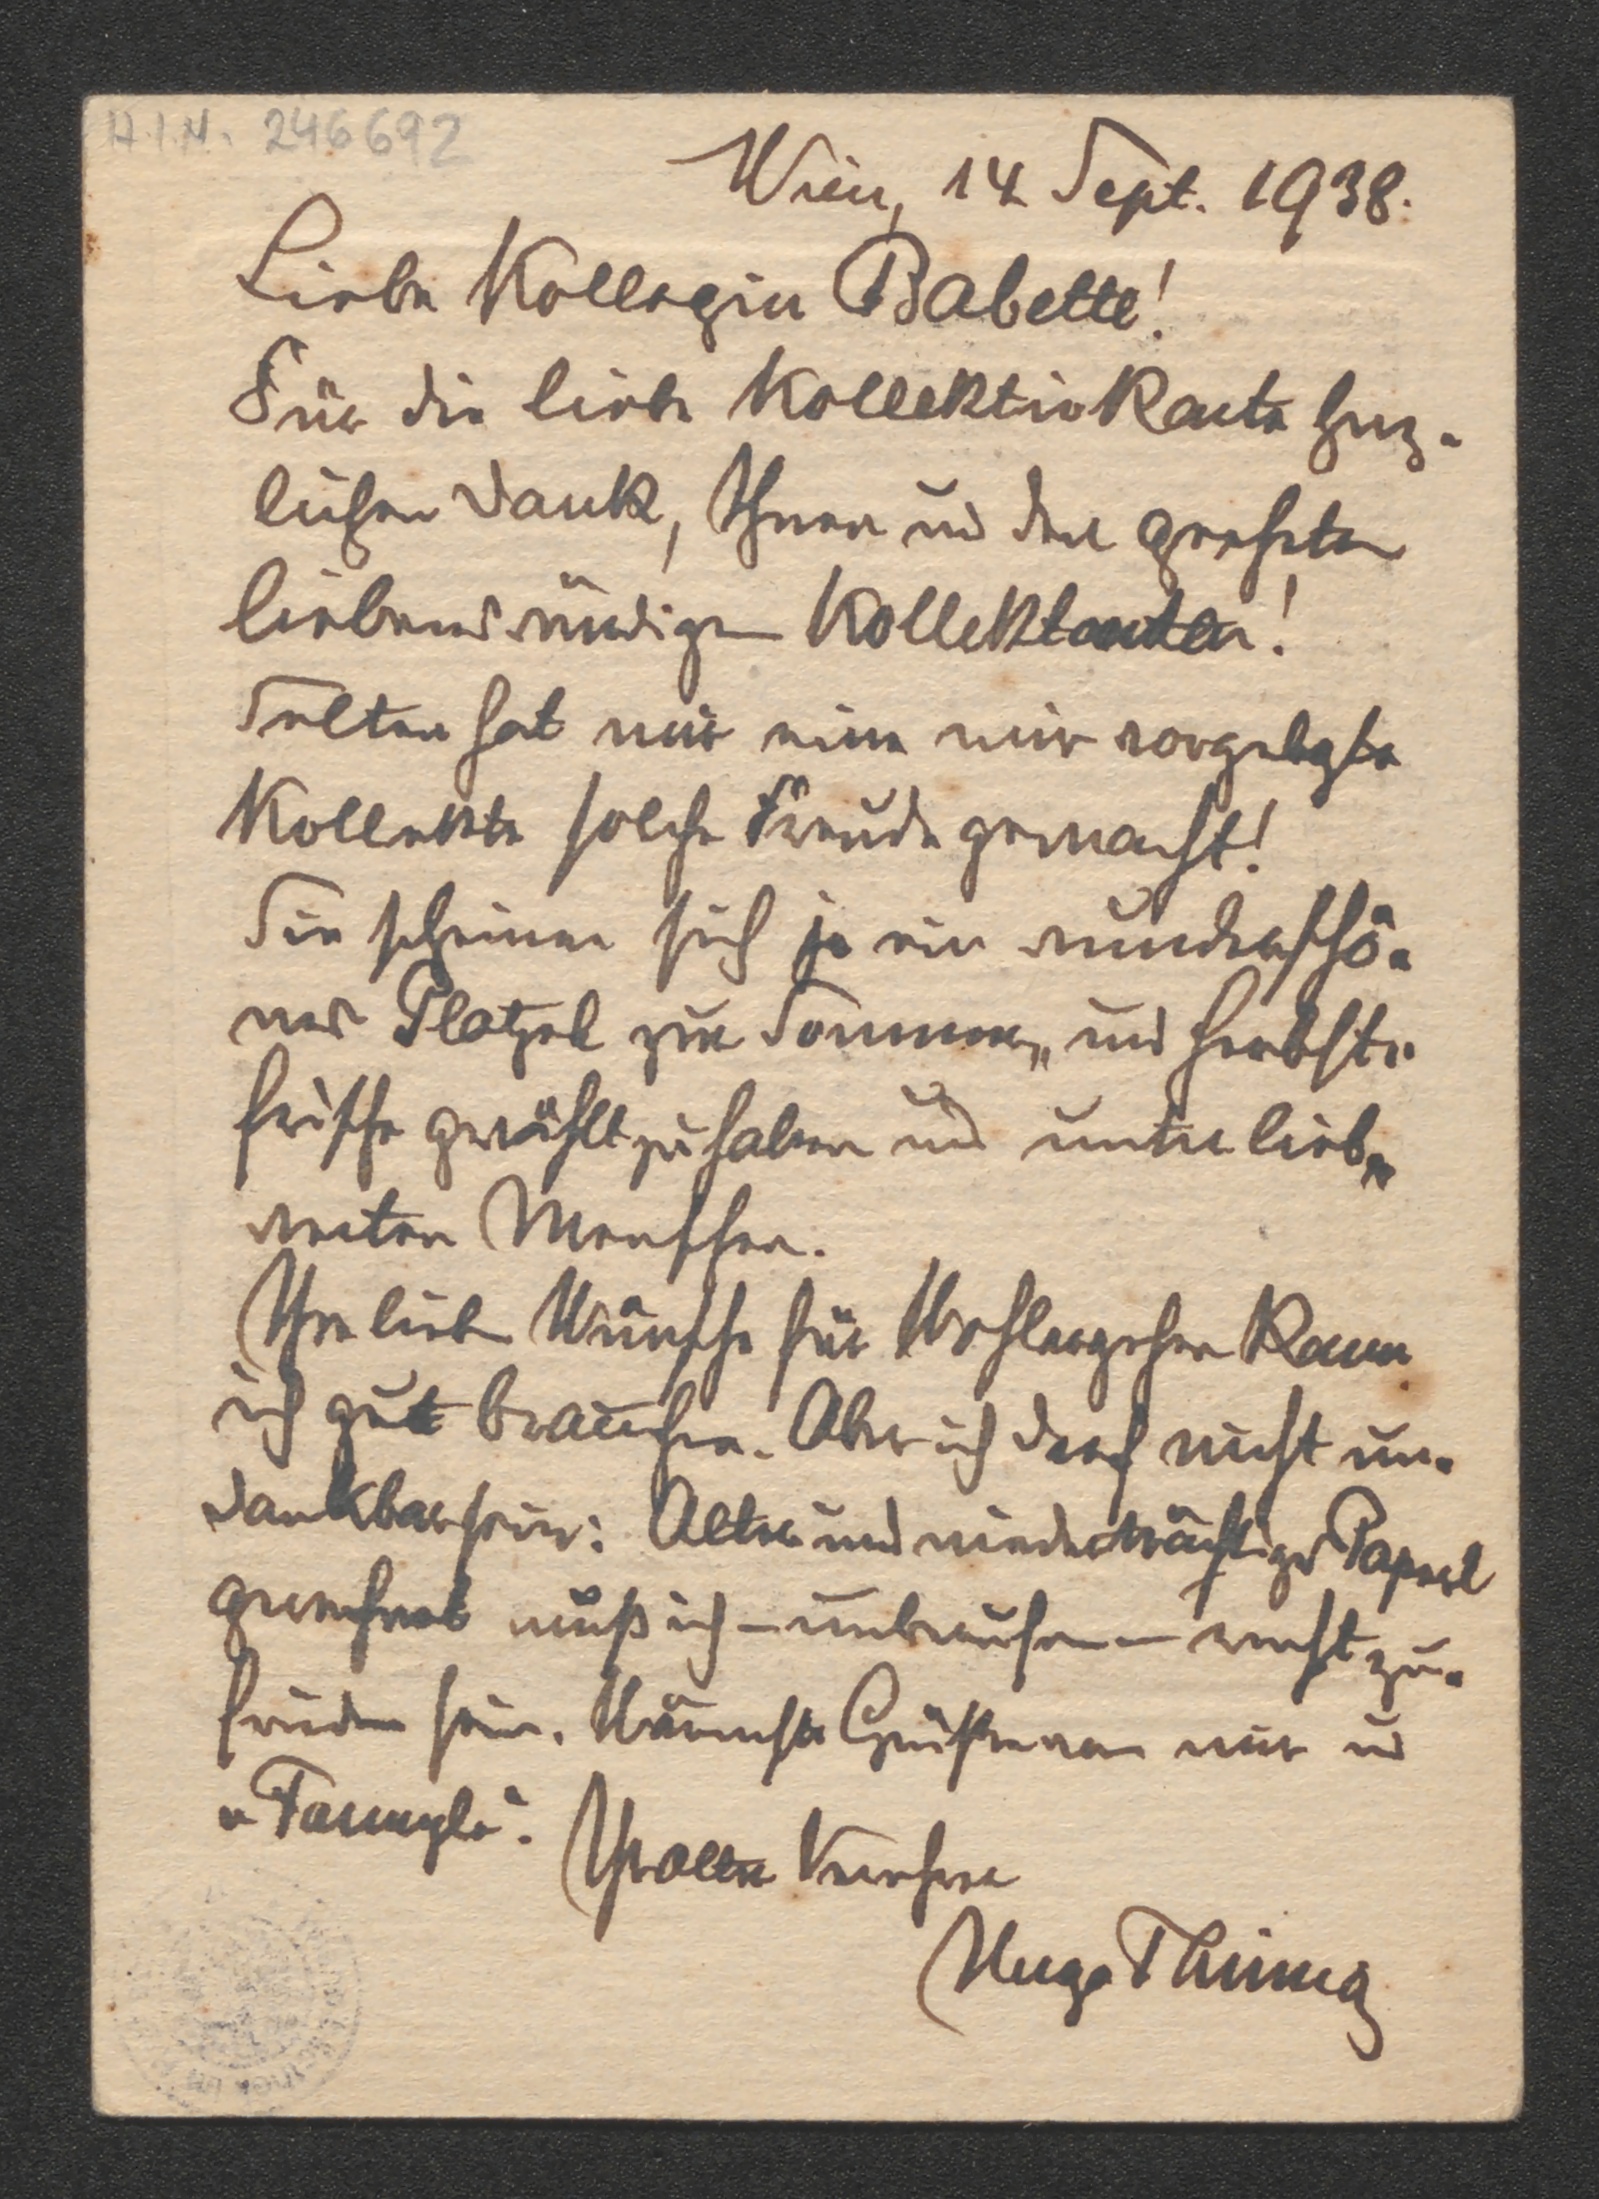 H.I.N. 246692
Wien, 14 Sept. 1938.
Liebe Kollegin Babette!
Für die liebe Kollektivkarte herz-
lichen Dank, Ihnen und den geehrten
liebenswürdigen Kollektanten!
Selten hat mir eine mir vorgelegte
Kollekte solche Freude gemacht!
Sie scheinen sich ja ein wunderschö-
nes Platzel zur Sommer- und Herbst-
frische gewählt zu haben und unter lieb-
werten Menschen.
Ihre lieben Wünsche für Wohlergehen kann
ich gut brauchen. Aber ich darf nicht un-
dankbar sein: Alter und niederträchtiges
gerechnet muß ich – unberufen – recht zu-
frieden sein. Wärmste Grüße von mir und
Ihr alter Verehrer
Hugo Thimig